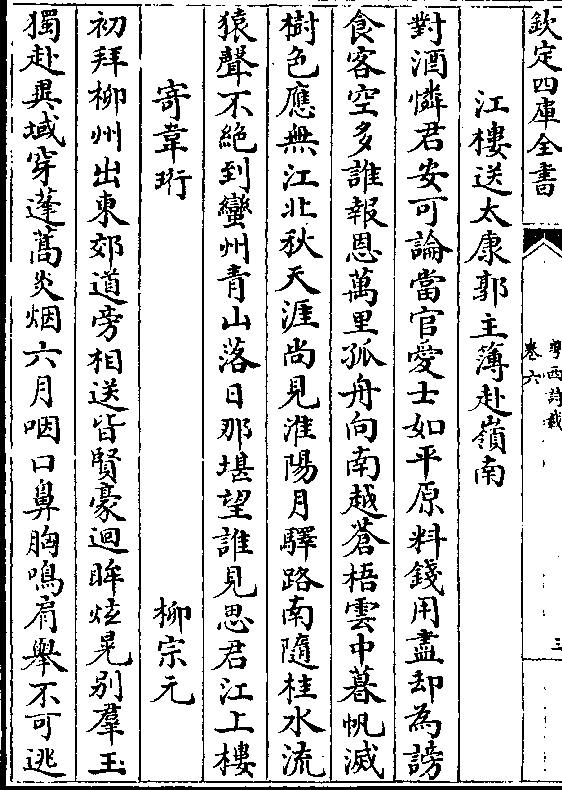 欽定四庫全書
粤西詩載
卷六
三
江樓送太康郭主簿赴嶺南
對酒憐君安可論當官愛士如平原料錢用盡却為謗
食客空多誰報恩萬里孤舟向南越蒼梧雲中暮帆滅
樹色應無江北秋天涯尚見淮陽月驛路南隨桂水流
猿聲不絶到蠻州青山落日那堪望誰見思君江上樓
寄韋珩
柳宗元
初拜柳州出東郊道旁相送皆賢豪迴眸炫晃别羣玉
獨赴異域穿蓬蒿炎烟六月咽口鼻胸鳴肩舉不可逃